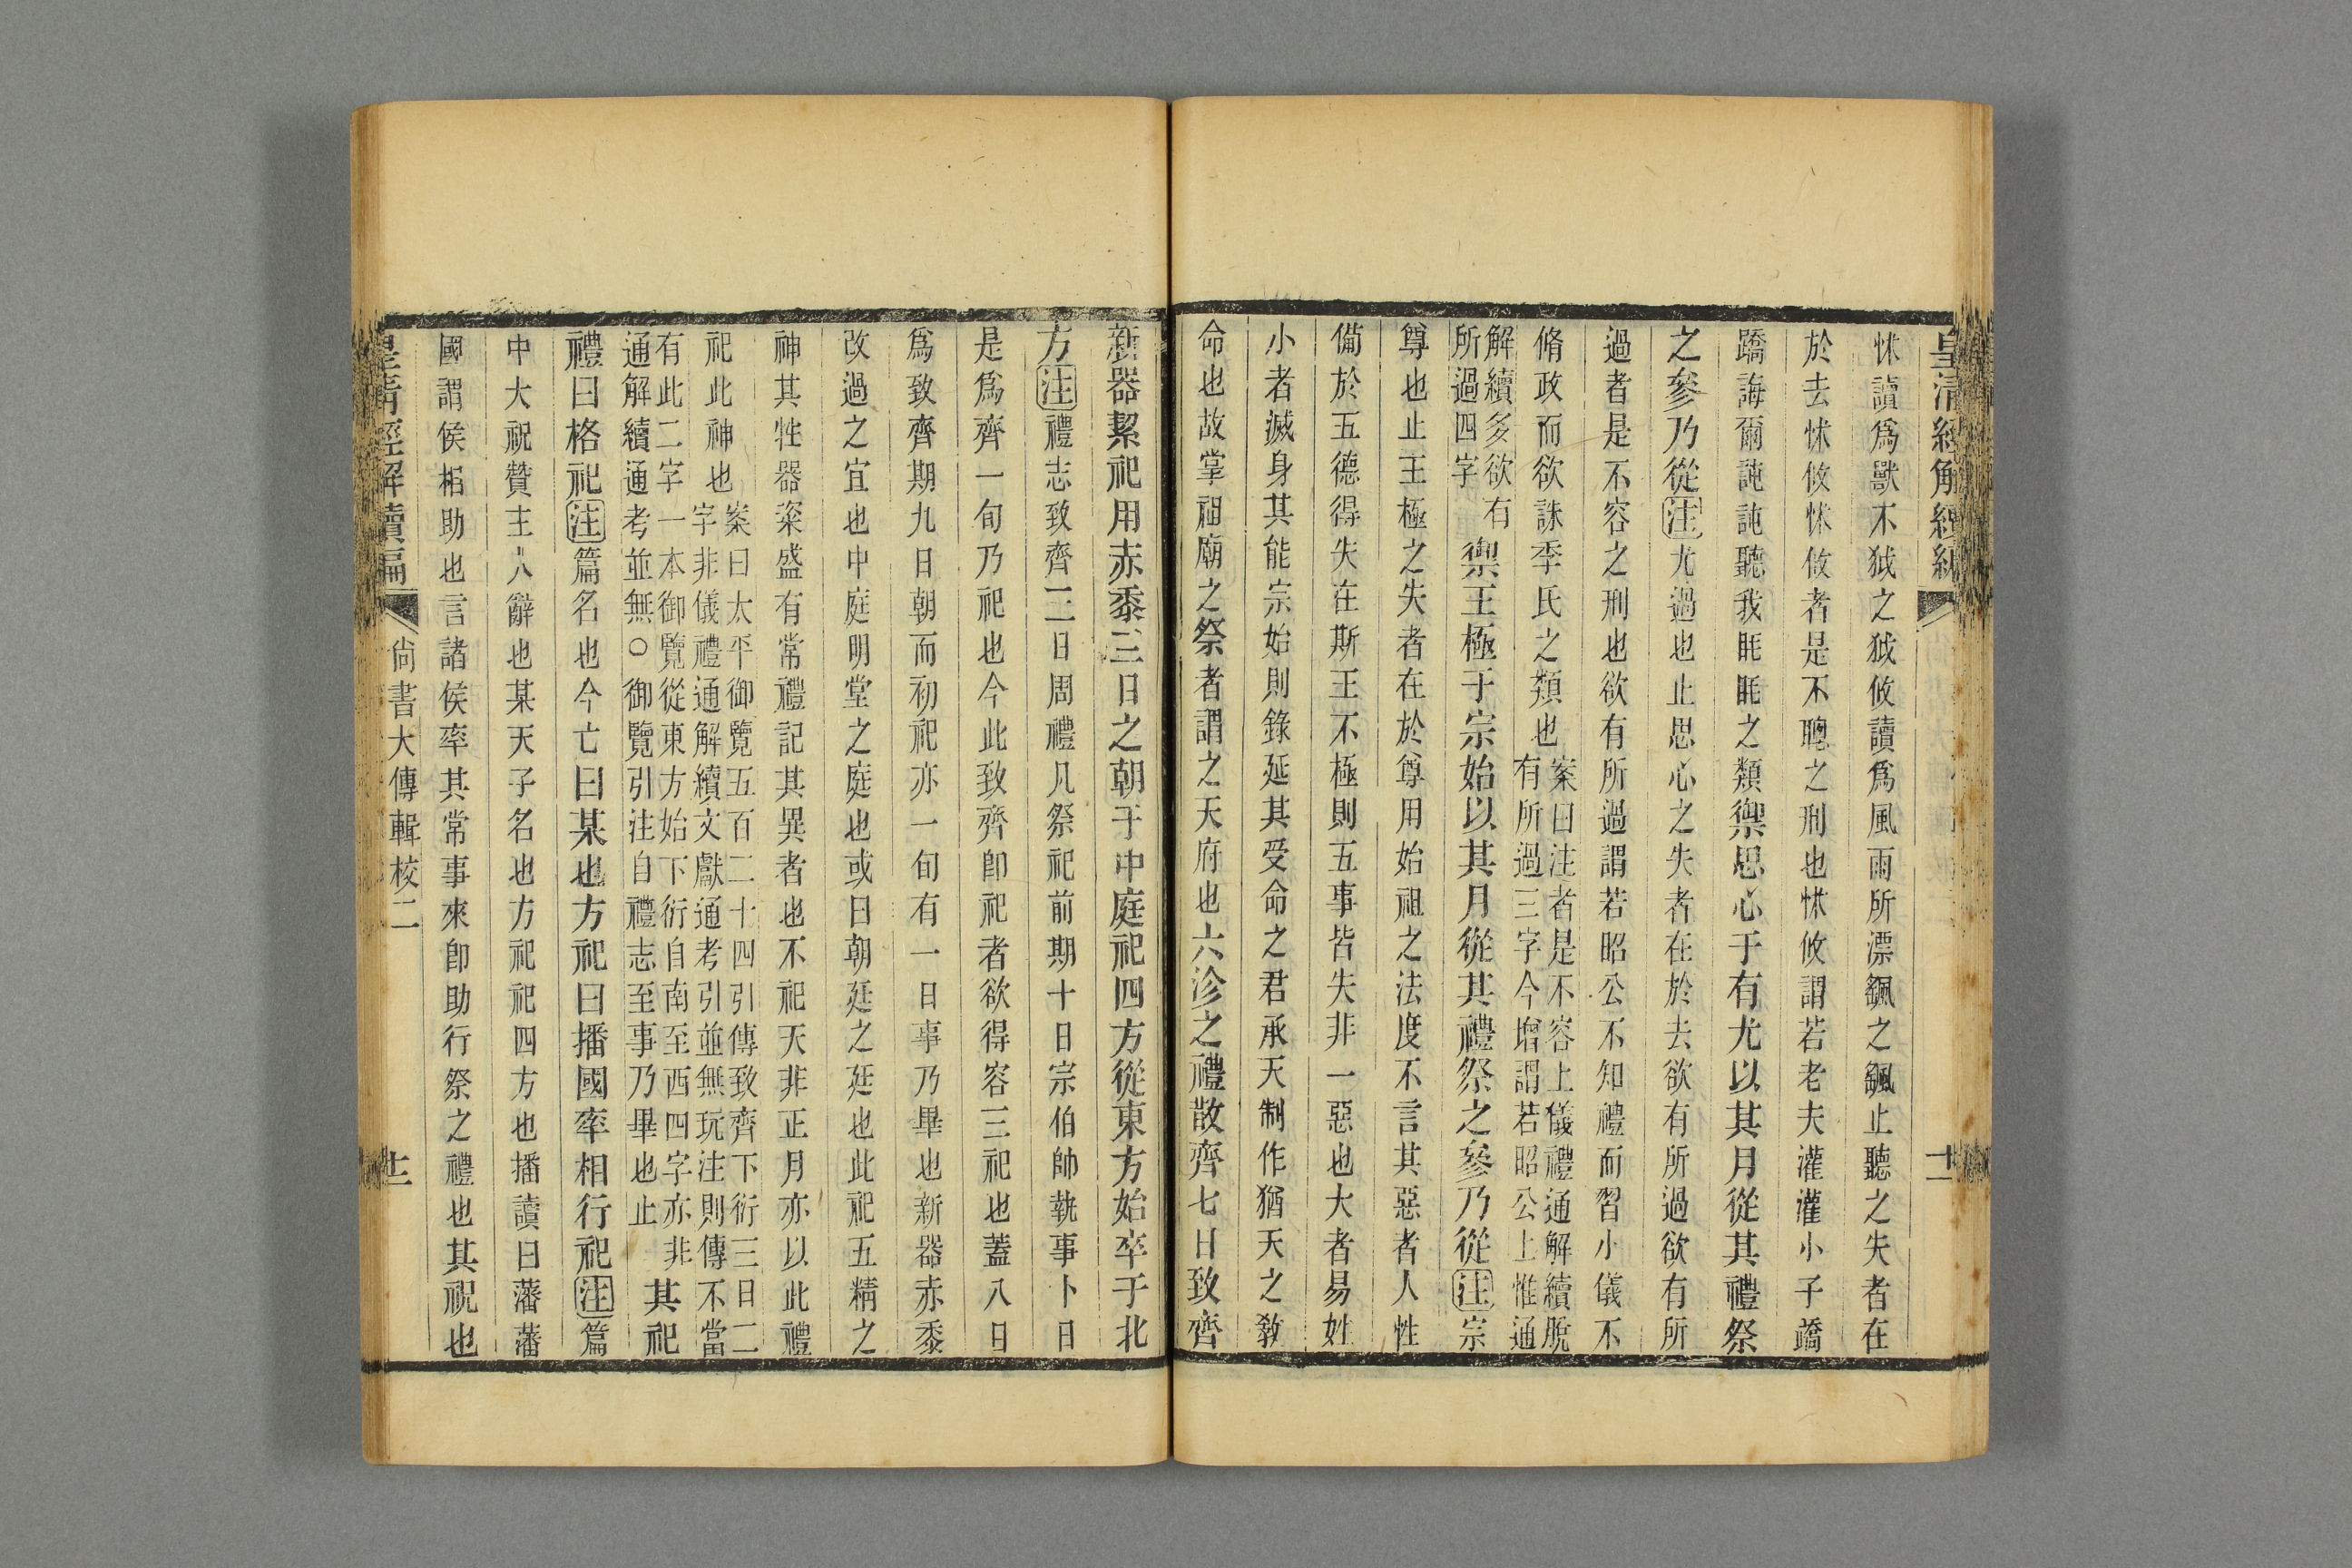 皇清經解續編
十二
怵讀爲獸不狘之狘攸讀爲風雨所漂飄之飄止聽之失者在
於去怵攸怵攸者是不聰之刑也怵攸謂若老夫灌灌小子蹻
蹻誨爾訰訰聽我眊眊之類禦思心于有尤以其月從其禮祭
之參乃從注尤過也止思心之失者在於去欲有所過欲有所
過者是不容之刑也欲有所過謂若昭公不知禮而習小儀不
脩政而欲誅季氏之類也案曰注者是不容上儀禮通解續脫
有所過三字今增謂若昭公上惟通
解續多欲有
所過四字禦王極于宗始以其月從其禮祭之參乃從注宗
尊也止王極之失者在於尊用始祖之法度不言其惡者人性
備於五德得失在斯王不極則五事皆失非一惡也大者易姓
小者滅身其能宗始則錄延其受命之君承天制作猶天之敎
命也故掌祖廟之祭者謂之天府也六沴之禮散齊七日致齊
新器絜祀用赤黍三日之朝于中庭祀四方從東方始卒于北
方注禮志致齊三日周禮凡祭祀前期十日宗伯帥執事卜日
是爲齊一旬乃祀也今此致齊卽祀者欲得容三祀也蓋八日
爲致齊期九日朝而初祀亦一旬有一日事乃畢也新器赤黍
改過之宜也中庭明堂之庭也或曰朝廷之廷也此祀五精之
神其牲器粢盛有常禮記其異者也不祀天非正月亦以此禮
祀此神也案曰太平御覽五百二十四引傳致齊下衍三日二
字非儀禮通解續文獻通考引並無玩注則傳不當
有此二字一本御覽從東方始下衍自南至西四字亦非
通解續通考並無○御覽引注自禮志至事乃畢也止其祀
禮曰格祀注篇名也今亡曰某也方祀曰播國率相行祀注篇
中大祝贊主人辭也某天子名也方祀祀四方也播讀曰藩藩
國謂侯相助也言諸侯率其常事來卽助行祭之禮也其祝也
皇清經解續編
尙書大傳輯校二
十二